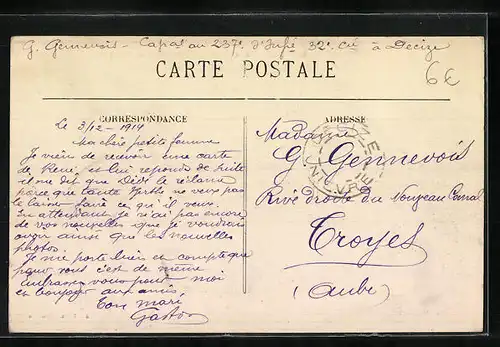 G. Gennevois - Capal au 237e d'Infie 32e Cie à Decize
CARTE POSTALE
6€
CORRESPONDANCE
ADRESSE
Le 3/12-1914
Ma chère petite femme
Je vien de recevoir une carte
de René et lui reponds de suite
il me dit que Dédé le réclame
parce que tante Berthe ne veux pas
le laissé faire ce qu'il veux.
En attendant je n'ai pas encore
de vos nouvelles que je voudrais
avoir ainsi que les nouvelles
photos.
Je me porte bien et compte que
pour vous c'est de même
embrasse vous pour moi
et bonjour aux amis
Ton mari
Gaston
Madame
G Gennevois
Rive Droite du Nouveau Canal
Troyes
(Aube)